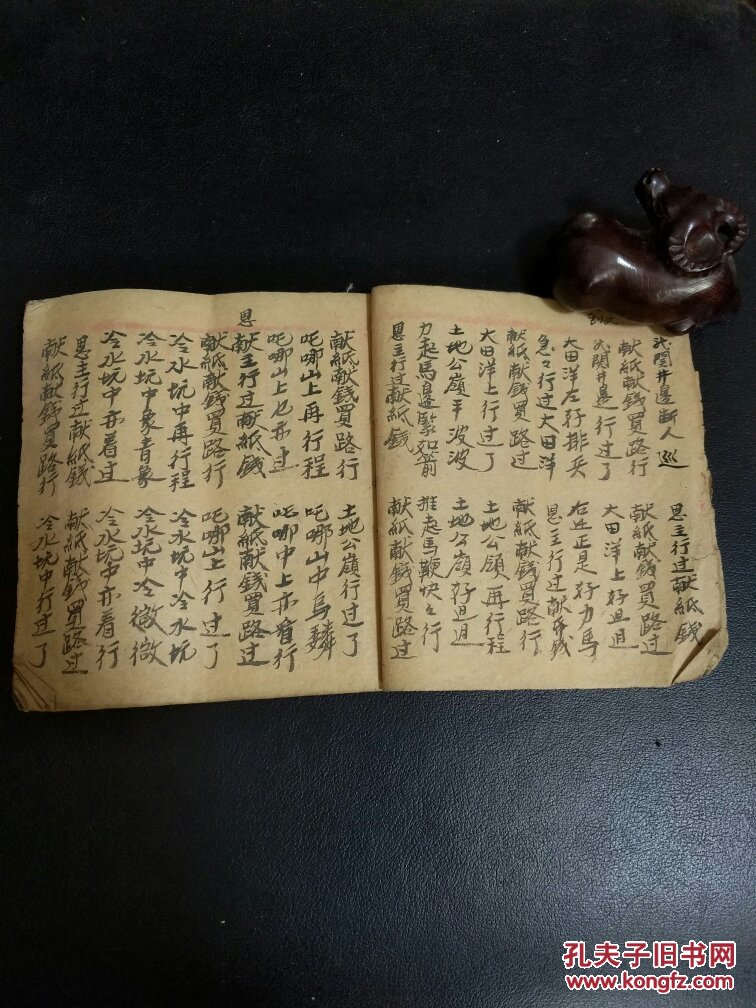 関井邊断人巡 恩主行过献紙錢
献紙献錢買路行 献紙献錢買路过
関井邊行过了 大田洋上好且过
大田洋左好排兵 右边正是好力馬
急々行过大田洋 恩主行过献紙戋
献紙献錢買路过 献紙献錢買路行
大田洋上行过了 土地公嶺再行程
土地公嶺平波波 土地公嶺好且过
力起馬邊緊如前 推起馬鞭快々行
恩主行过献紙錢 献紙献錢買路过
献紙献錢買路行 土地公嶺行过了
吒哪山上再行程 吒哪山中鱗
吒哪山上也亦过 吒哪中上亦看行
恩
献主行过献紙錢 献紙献錢買路过
献紙献錢買路行 吒哪山上行过了
冷水坑中再行程 冷水坑中冷水坑
冷水坑中象音象 冷水坑中冷微微
冷水坑中亦看过 冷水坑中亦看行
恩主行过献紙錢 献紙献錢買路过
献紙献錢買路行 冷水坑中行过了
孔夫子旧书网
www.kongfz.com